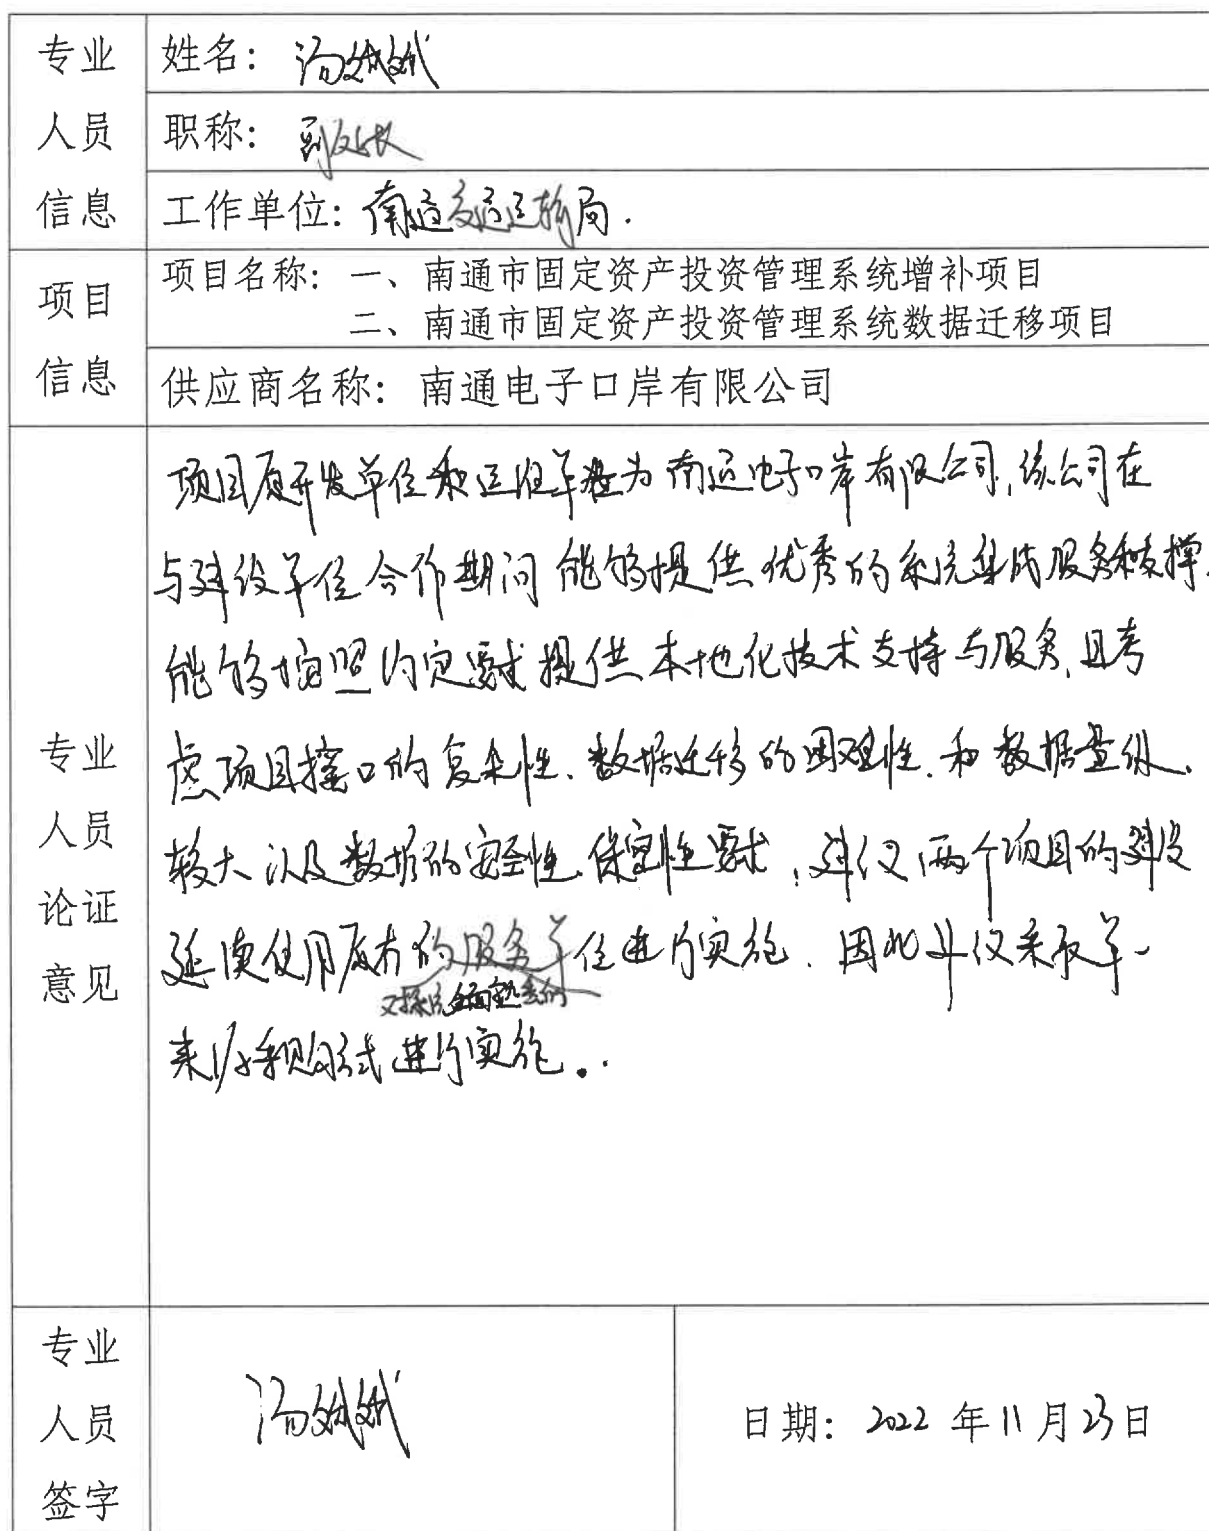 专业人员信息
姓名：汤斌斌
职称：副处长
工作单位：南通交通运输局.
项目信息
项目名称：一、南通市固定资产投资管理系统增补项目
二、南通市固定资产投资管理系统数据迁移项目
供应商名称：南通电子口岸有限公司
专业人员论证意见
项目原开发单位和运维单位为南通电子口岸有限公司,该公司在
与建设单位合作期间能够提供优秀的系统集成服务和支撑,
能够按照约定要求提供本地化技术支持与服务,且考
虑项目接口的复杂性、数据迁移的困难性、和数据量
较大以及数据的安全性、保密性要求,建议两个项目的建设
延续使用原有的服务单位进行实施.因此建议采取单一
来源采购形式进行实施。
专业人员签字
汤斌斌
日期：2022年11月23日